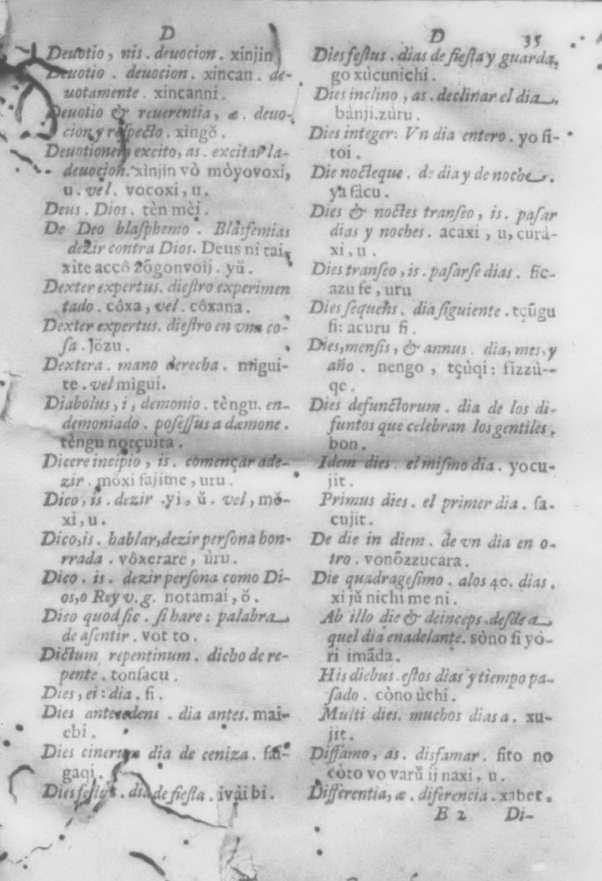 D
Deuotio, nis. deuocion. xinjin
Deuotio. deuocion. xincan. de-
uotamente. xincanni.
Deuotio & reuerentia, æ. deuo-
cion y respecto. xingŏ.
Deuotionem excito, as. excitar la-
deuocion. xìnjin vò mòyovoxi,
u. vel. vocoxi, u.
Deus. Dios. tèn mèi.
De Deo blasphemo. Blasfemias
dezir contra Dios. Deus ni tai,
xite accô zŏgonvoij. yŭ.
Dexter expertus. diestro experimen
tado. côxa, vel. côxana.
Dexter expertus. diestro en vna co-
sa. Jòzu.
Dextera. mano derecha. migui-
te. vel migui.
Diabolus, i, demonio. tèngu. en-
demoniado. possessus a dæmone.
tèngu notçuita.
Dicere incipio, is. començar a de-
zir. mòxi fajime, uru.
Dico, is. dezir. yi, ŭ. vel, mŏ-
xi, u.
Dico, is. hablar, dezir persona hon-
rrada. vôxerare, ùru.
Dico. is. dezir persona como Di-
os, o Rey v.g. notamai, ŏ.
Dico quod sic. si hare: palabra
de asentir. vot to.
Dictum repentinum. dicho de re-
pente. tonsacu.
Dies, ei: dia. fi.
Dies antecedens. dia antes. mai-
cbi.
Dies cinerum dia de ceniza.
gaqi.
Dies festus. dia de fiesta. ivài bi.
D 35
Dies festus. dias de fiesta y guarda,
go xùcunichi.
Dies inclino, as. declinar el dia.
bànji. zùru.
Dies integer: Vn dia entero. yo fi-
toi.
Die nocteque. de dia y de noche.
ya fàcu.
Dies & noctes transeo, is. pasar
dias y noches. acaxi, u, curà-
xi, u.
Dies transeo, is. pasarse dias. fic-
azu fe, uru
Dies sequens. dia siguiente. tçŭgu
fi: acuru fi.
Dies, mensis, & annus. dia, mes, y
año. nengo, tçùqi: fizzù-
qe.
Dies defunctorum. dia de los di-
funtos que celebran los gentiles.
bon.
Idem dies. el mismo dia. yocu-
jit.
Primus dies. el primer dia. sa-
cujit.
De die in diem. de vn dia en o-
tro. vonŏzzucara.
Die quadragesimo. alos 40. dias.
xi jŭ nichi me ni.
Ab illo die & deinceps. desde a
quel dia en adelante. sòno fi yò-
ri imàda.
His diebus. estos dias y tiempo pa-
sado. còno ùchi.
Multi dies. muchos dias a. xu-
jit.
Diffamo, as. disfamar. fito no
còto vo varŭ ij naxi, u.
Differentia, æ. diferencia. xabet.
E 2 Di-